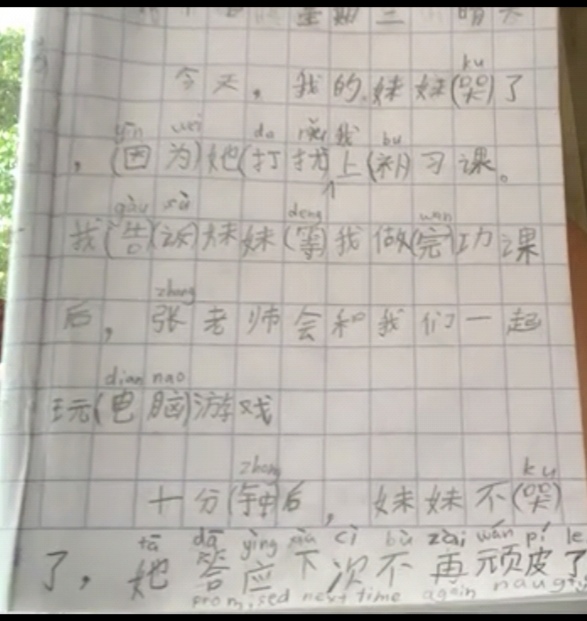 星期二 晴天
ku
今天，我的妹妹(哭)了
yīn wei da rǎo 我 bu
，(因为)她(打扰上(补)习课。
gàu sù deng wan
我(告(诉)妹妹(等)我做(完)功课
zhang
后，张老师会和我们一起
dian nao
玩(电脑)游戏
zhong ku
十分(钟)后，妹妹不(哭)
tā dā yìng xìa cì bù zài wán pí le
了，她答应下次不再顽皮了
promised next time again naughty